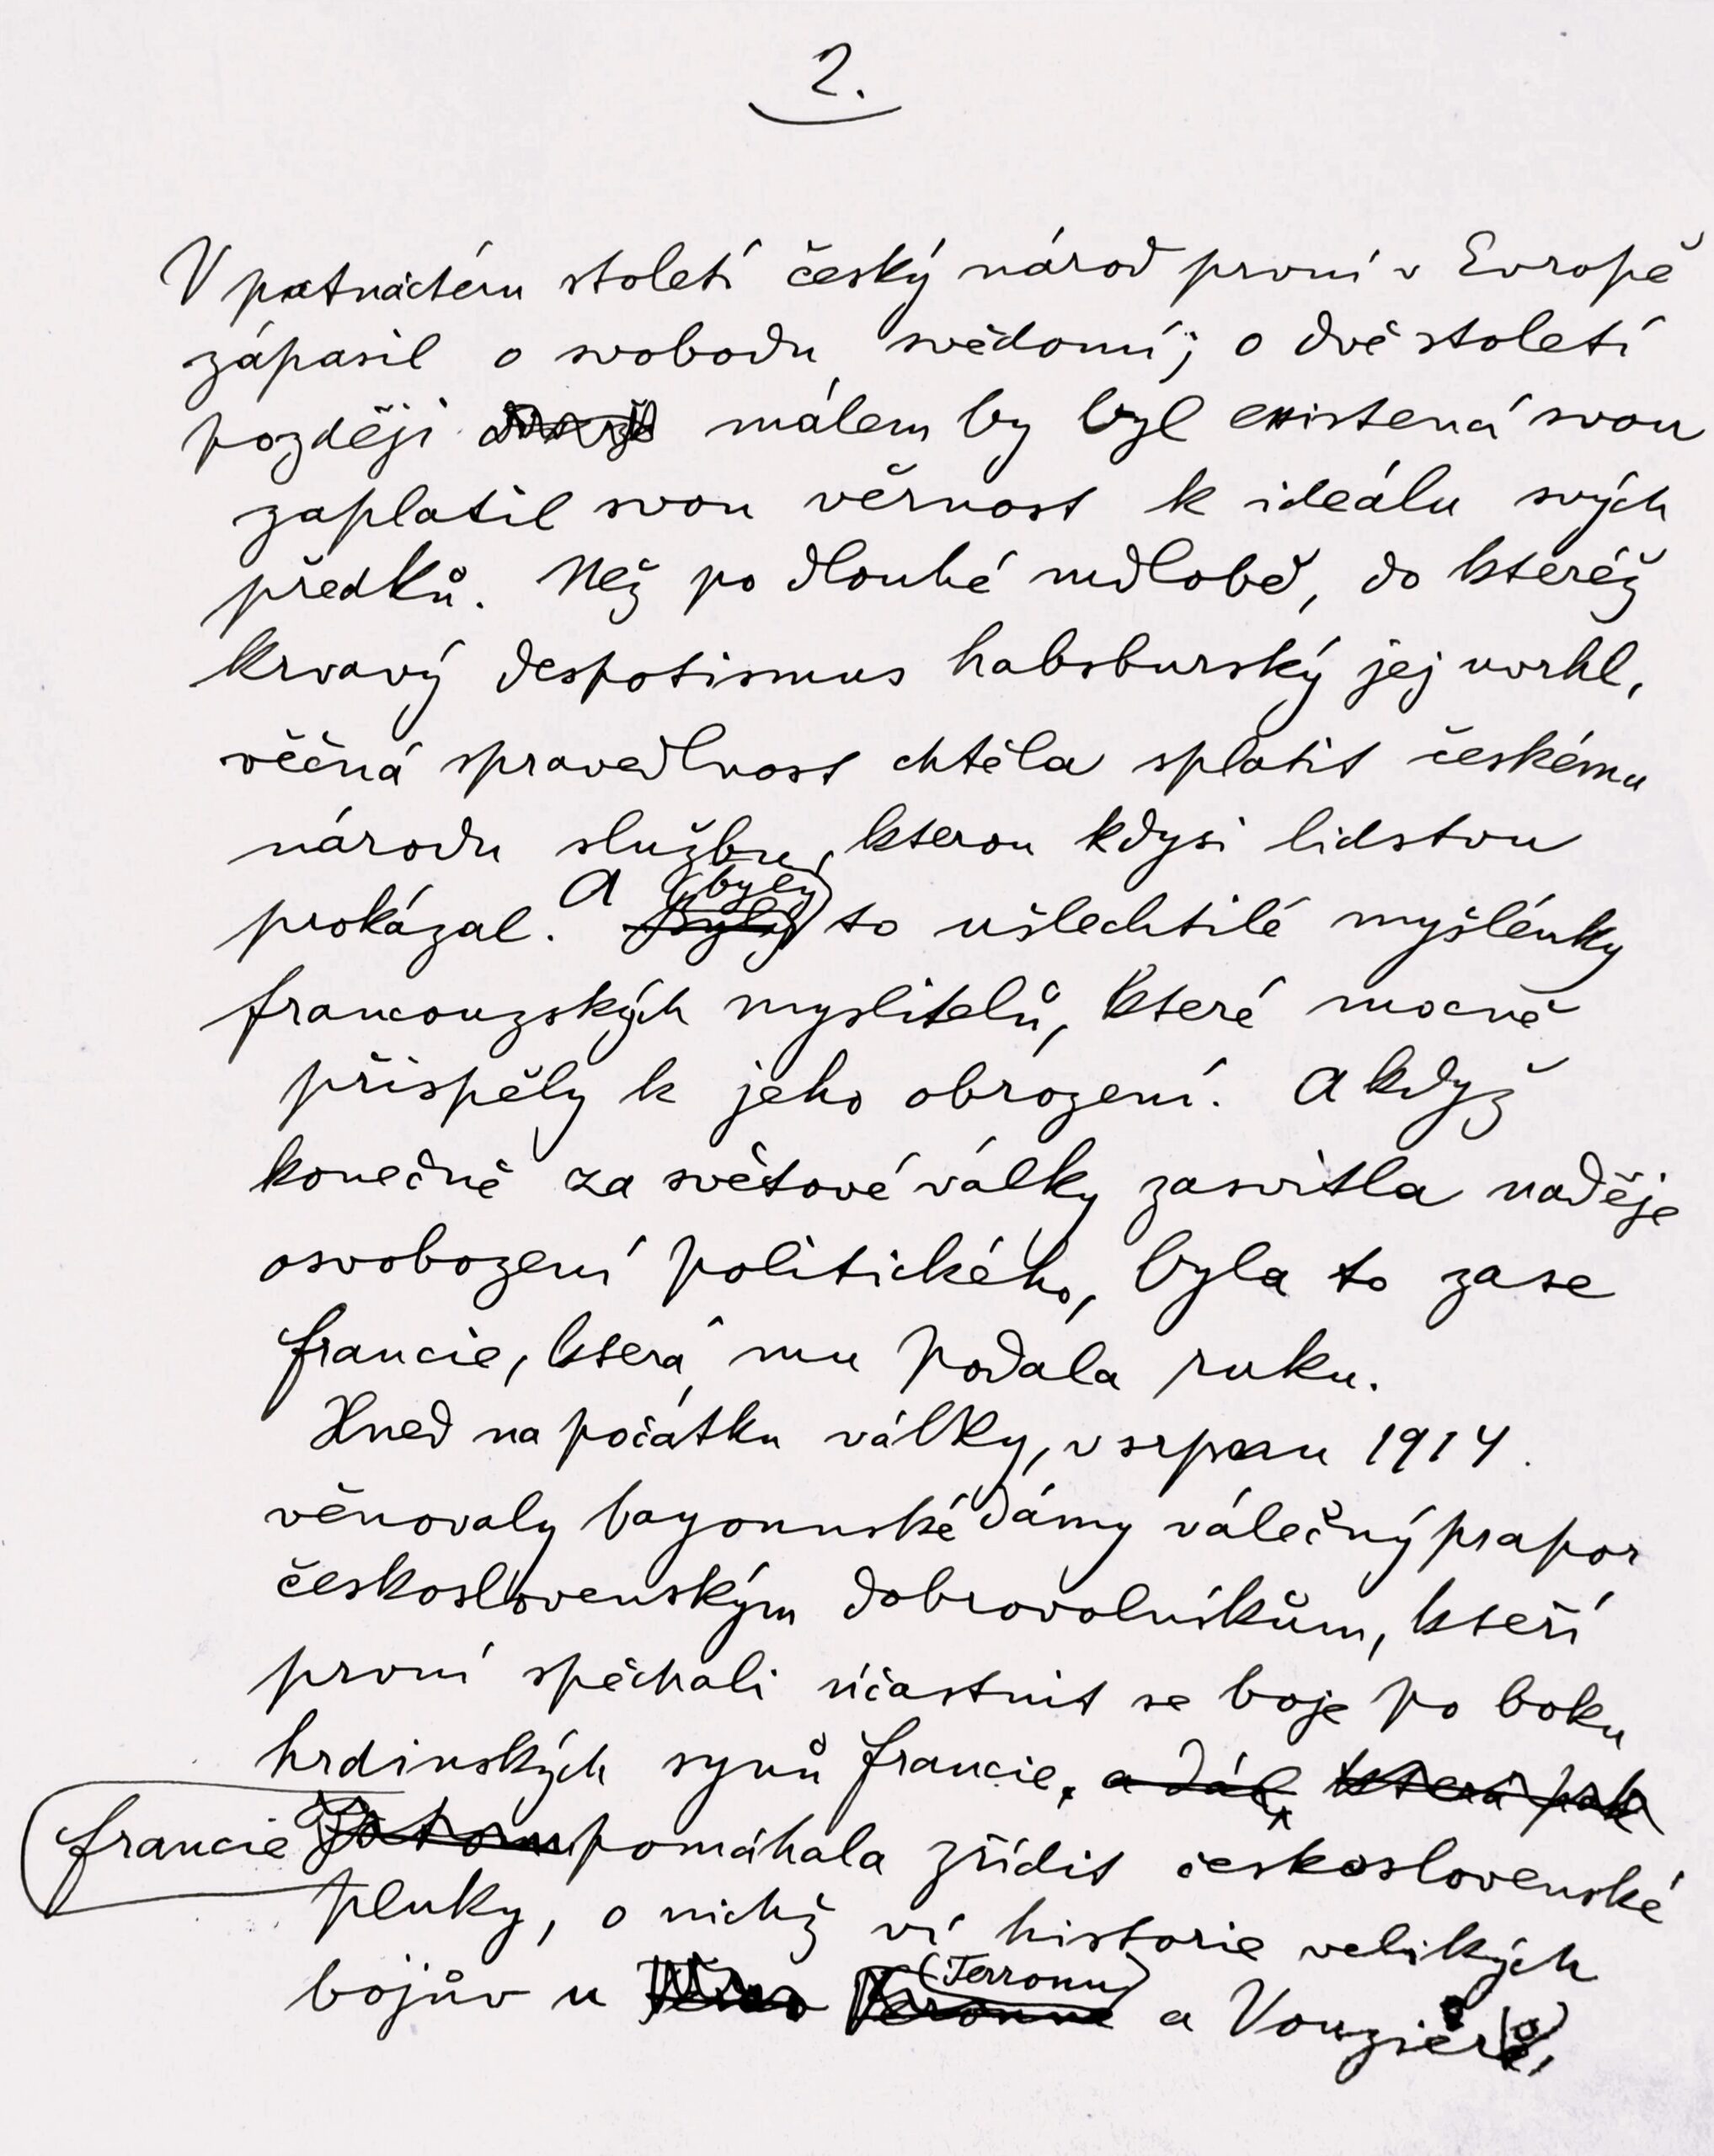 2.
V patnáctém století český národ první v Evropě
zápasil o svobodu svědomí; o dvě století
později málem by byl existencí svou
zaplatil svou věrnost k ideálu svých
předků. Než po dlouhé mdlobě, do kteréž
krvavý despotismus habsburský jej uvrhl,
věčná spravedlnost chtěla splatit českému
národu službu, kterou kdysi lidstvu
prokázal. A (byly) to ušlechtilé myšlénky
francouzských myslitelů, které mocně
přispěly k jeho obrození. A když
konečně za světové války zasvitla naděje
osvobození politického, byla to zase
Francie, která mu podala ruku.
Hned na počátku války, v srpnu 1914.
věnovaly bayonnské dámy válečný prapor
československým dobrovolníkům, kteří
první spěchali účastnit se boje po boku
hrdinských synů Francie, a dál, která pak
Francie potom pomáhala zřídit československé
pluky, o nichž ví historie velikých
bojův u Peronne (Terronu) a Vouzièrs,